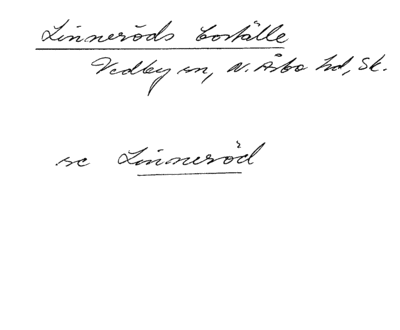 Linneröds boställe
Vedby sn, N. Åsbo hd, Sk.
se Linneröd